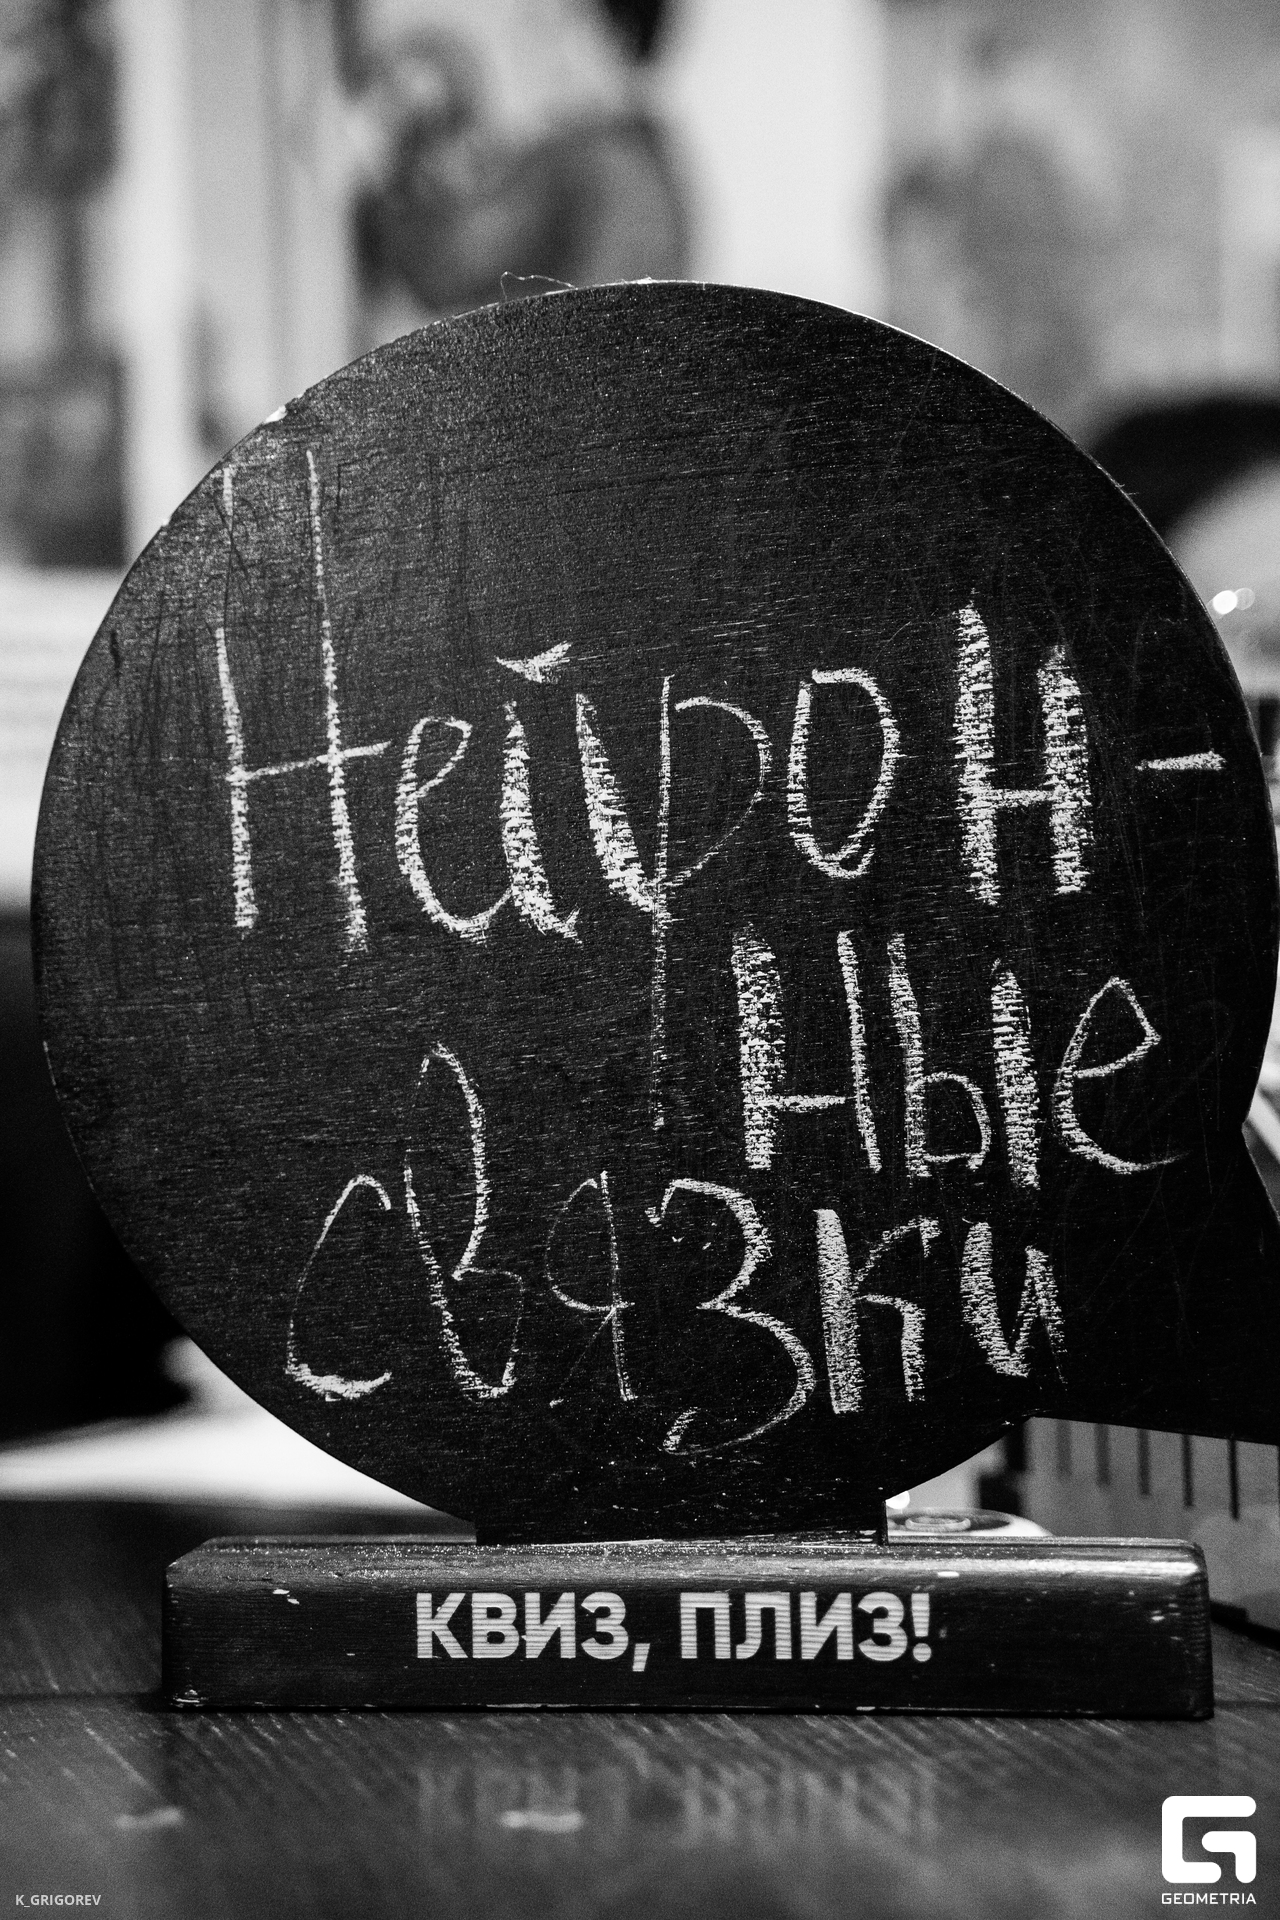 Нейрон-
ные
связки
КВИЗ, ПЛИЗ!
K_GRIGOREV
GEOMETRIA